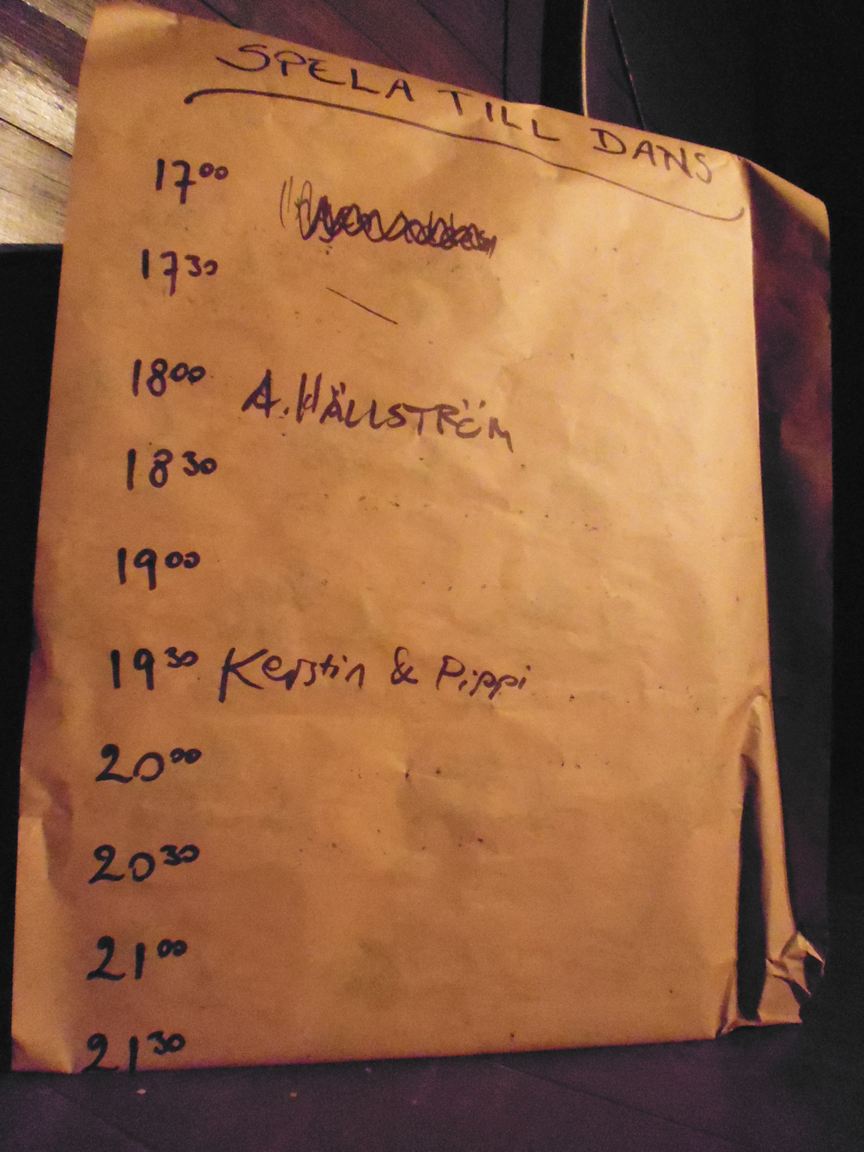 SPELA TILL DANS
17 00
17 30
18 00 A. HÄLLSTRÖM
18 30
19 00
19 30 Kerstin & Pippi
20 00
20 30
21 00
21 30